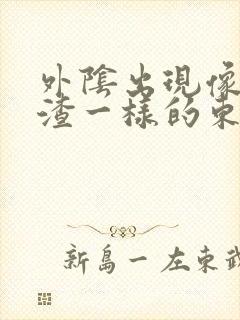 外陰出現像
渣一樣的東
新島一 左東武